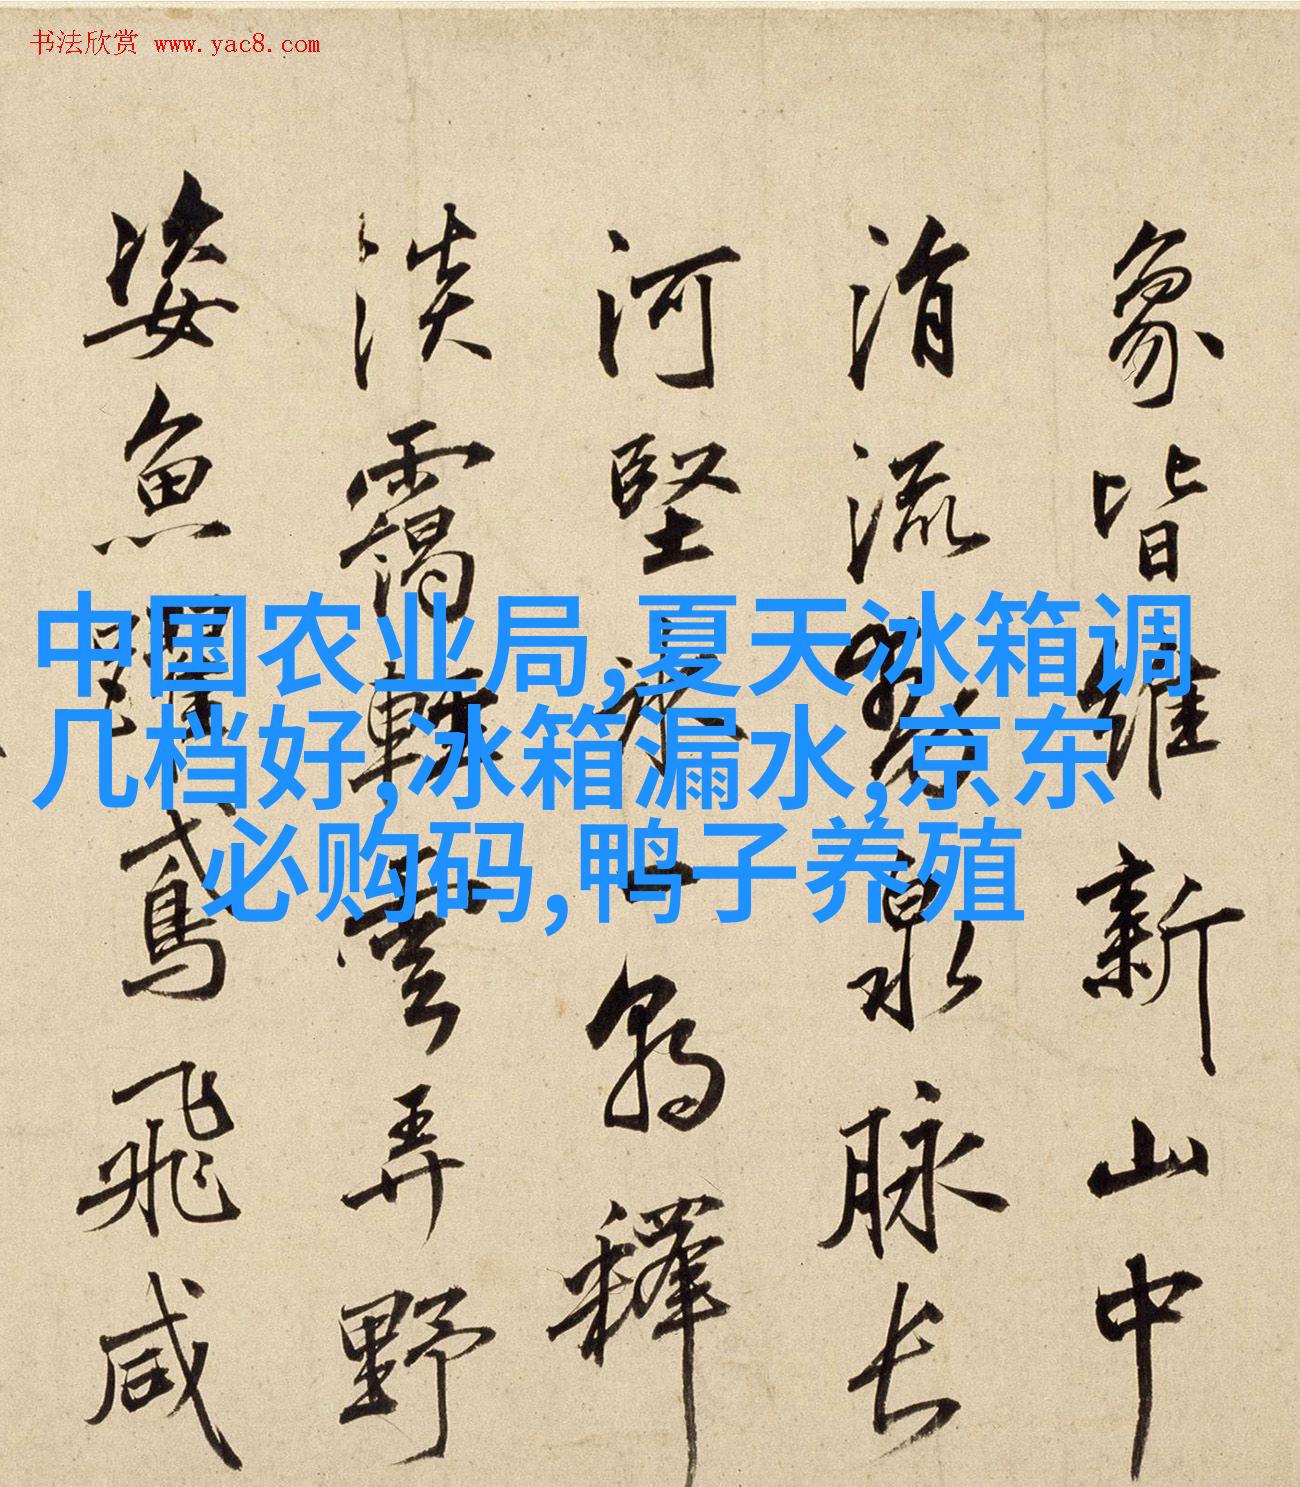 书法欣赏 www.yac8.com
中国农业局,夏天冰箱调
几档好,冰箱漏水,京东
必购码,鸭子养殖
象皆維新山中
涓流發泉脉长
河堅冰一朝釋
淡靄輕雲弄野
姿魚躍鳶飛咸